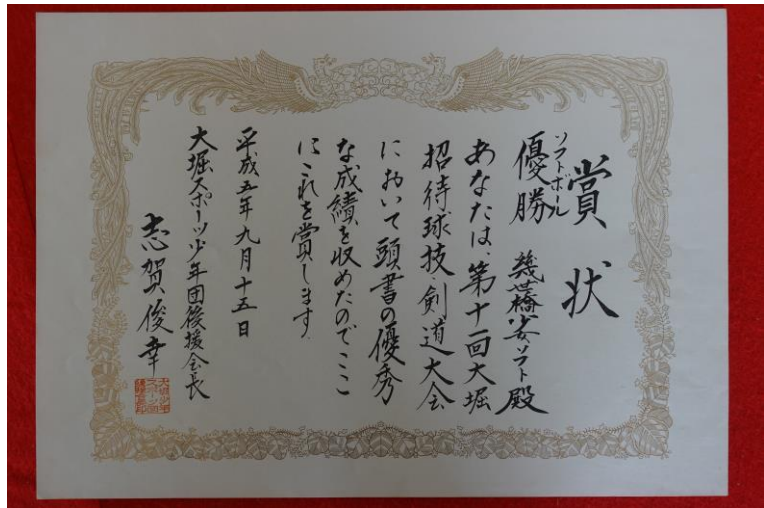 賞状
ソフトボール
優勝
幾世橋少女ソフト殿
あなたは、第十一回大堀
招待球技、剣道大会
において頭書の優秀
な成績を収めたのでここ
にこれを賞します
平成五年九月十五日
大堀スポーツ少年団後援会長
志賀俊幸